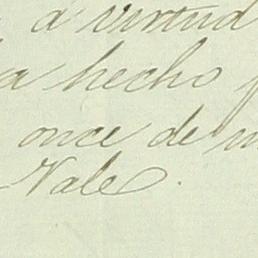 á virtud
hecho
once de
Vale.